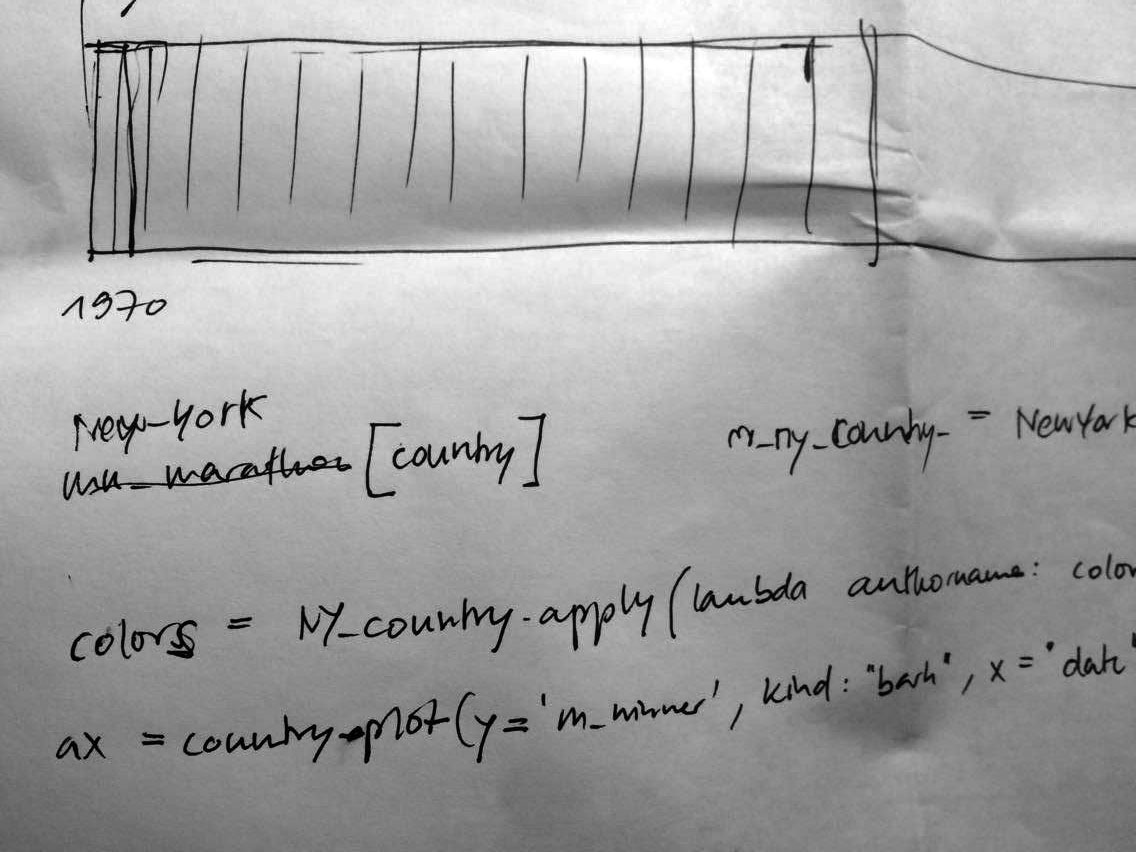 1970
New-York
[country]
m_ny_country_ = NewYork
colors = NY_country.apply(lambda authorname: color
ax = country.plot(y='m_winner', kind: "barh", x = "date"